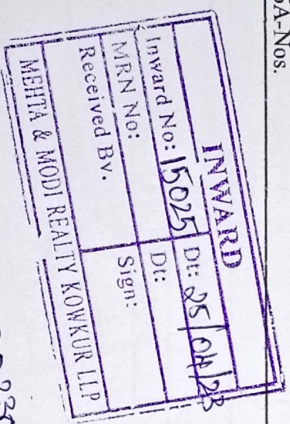 5A-Nos.
INWARD
Inward No: 15025 Dt: 25/04/23
MRN No: Dt:
Received By. Sign:
MEHTA & MODI REALTY KOWKUR LLP